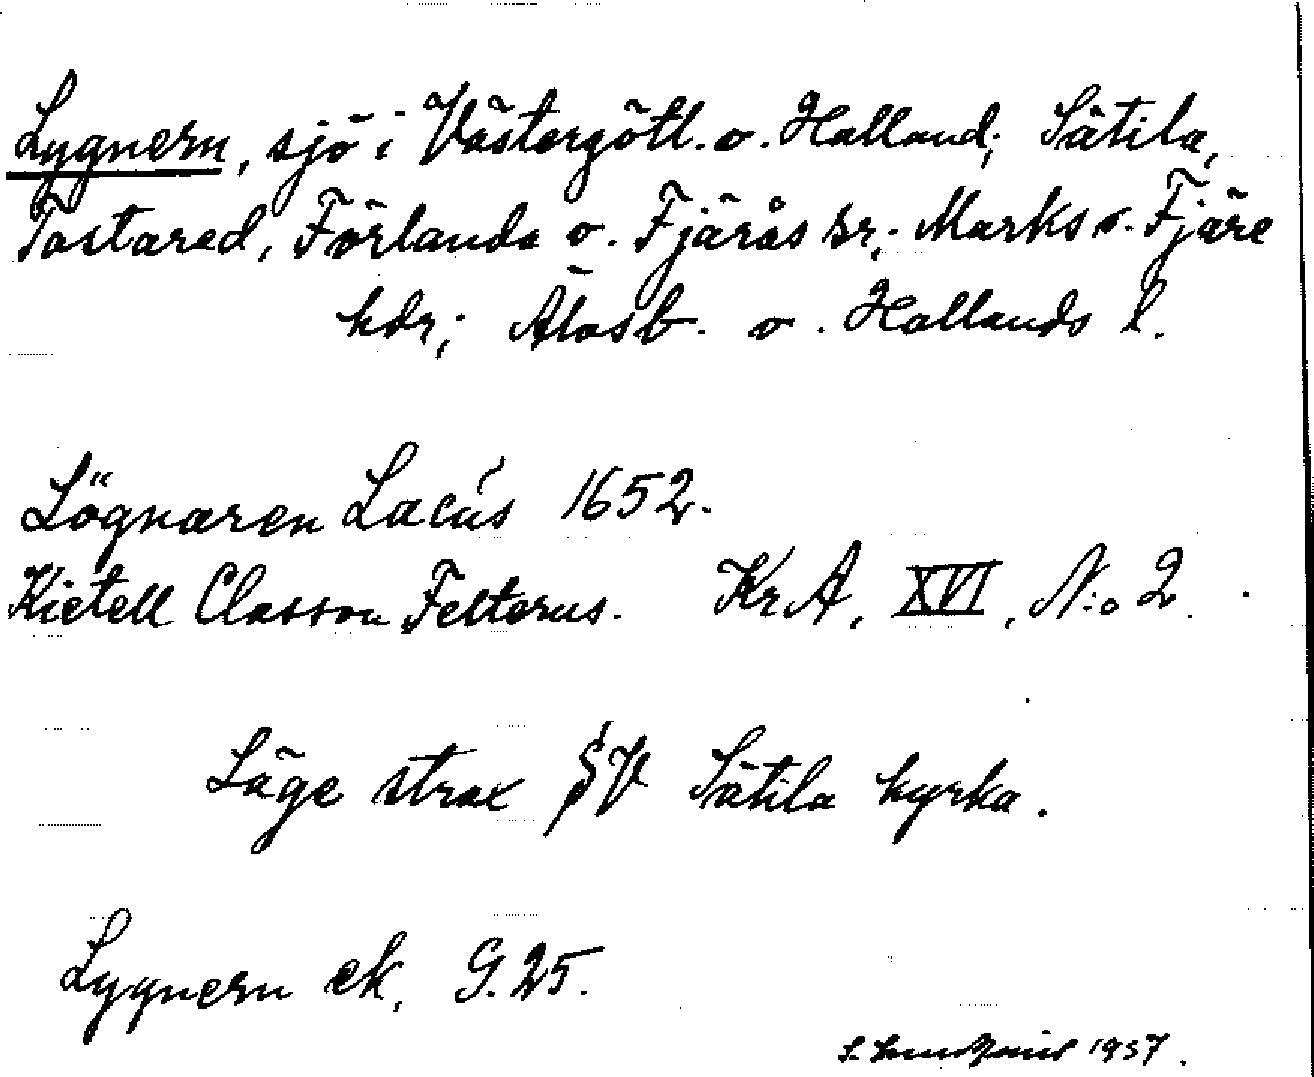 Lygnern, sjö i Västergötl. o. Halland; Sätila,
Tostared, Förlanda o. Fjärås sr; Marks o. Fjäre
hdr; Älvsb. o. Hallands l.
Lögnaren Lacus 1652.
Kietell Classon Felterus. KrA, XVI, N:o 2.
Läge strax V Sätila kyrka.
Lygnern ek, G.25.
1937.